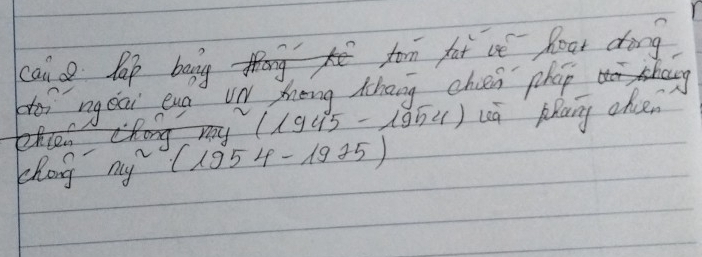 câu 2. lập bảng thống kê tóm tắt về hoạt động
đối ngoại của VN trong kháng chiến pháp và kháng
chiến chống mỹ (1945 - 1954) và kháng chiến
chống mỹ (1954 - 1975)